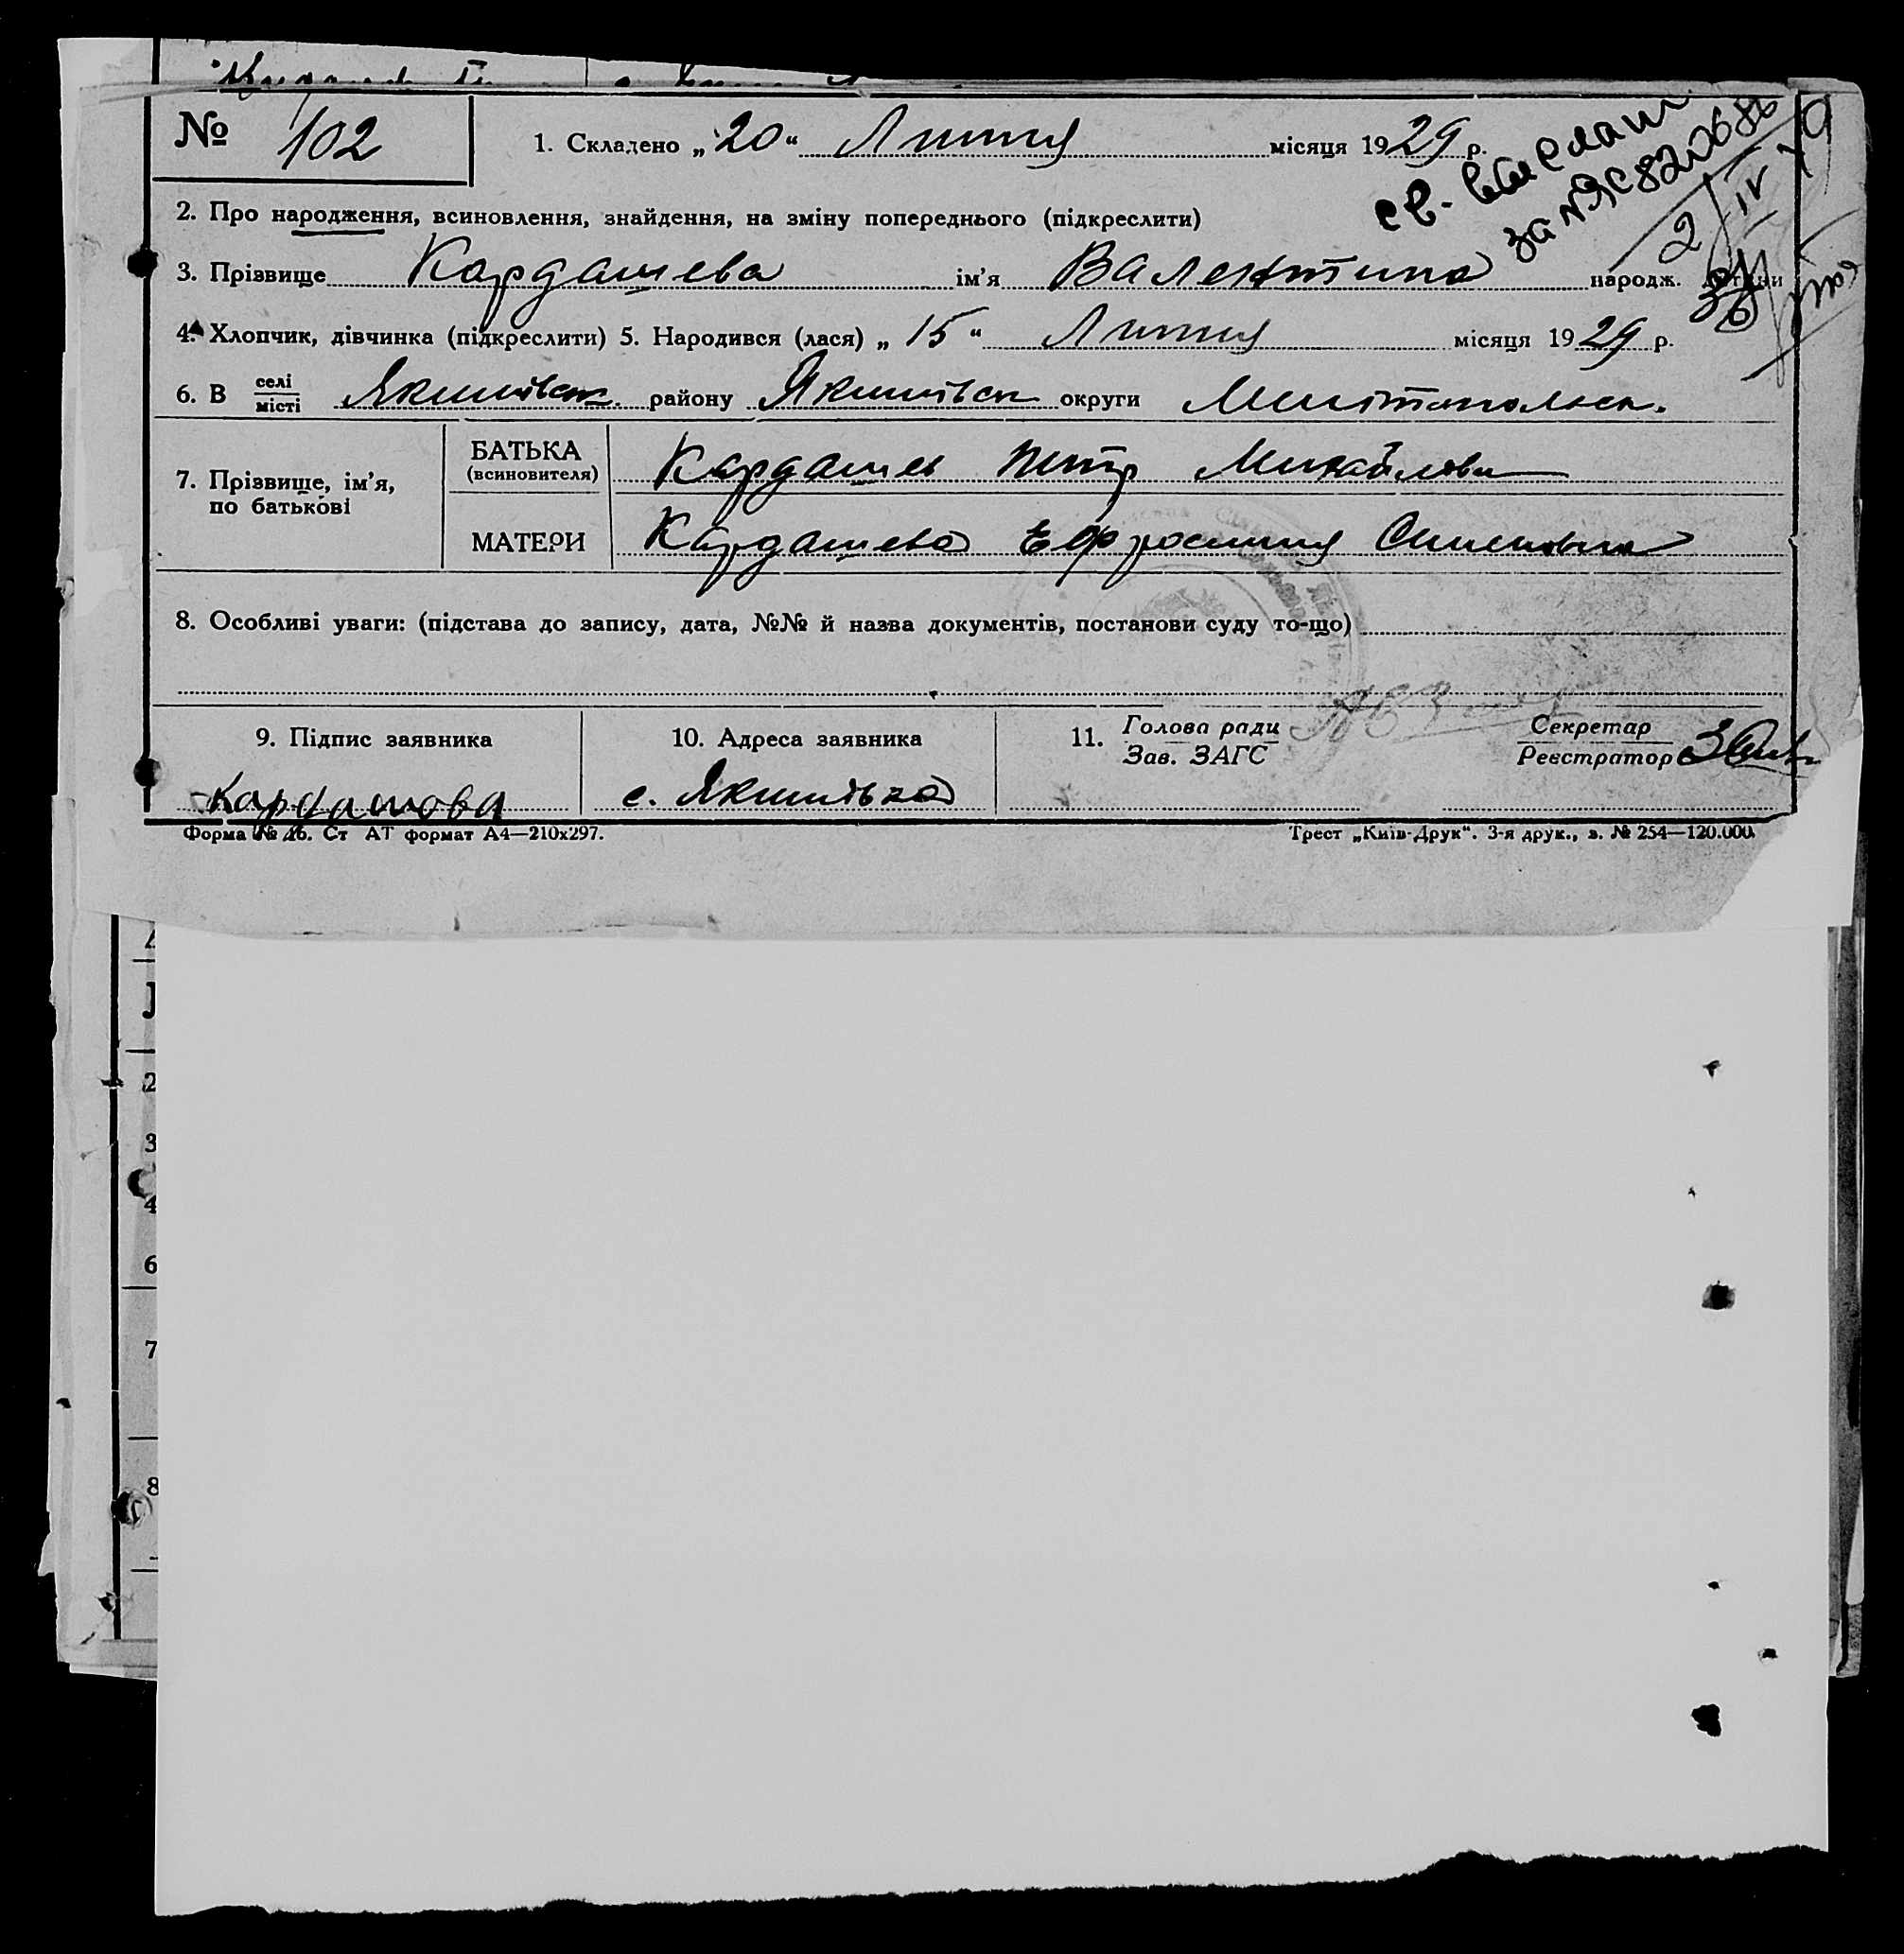 № 102
1. Складено „20“ Липня місяця 1929 р.
св. выслан
за № ЯС 8202686
2. Про народження, всиновлення, знайдення, на зміну попереднього (підкреслити)
3. Прізвище Кардашева ім’я Валентина народж.
4. Хлопчик, дівчинка (підкреслити) 5. Народився (лася) „15“ Липня місяця 1929 р.
6. В селі місті Якимівськ. району Якимівськ округи Мелітопольск.
7. Прізвище, ім’я, по батькові
БАТЬКА (всиновителя) Кардашев Петр Михайлови
МАТЕРИ Кардашева Ефросиния
8. Особливі уваги: (підстава до запису, дата, №№ й назва документів, постанови суду то-що)
9. Підпис заявника
10. Адреса заявника
11. Голова ради Зав. ЗАГС
Секретар Реєстратор
Кардашова
с. Якимівка
Форма № 16. Ст АТ формат А4—210х297.
Трест „Київ-Друк“. 3-я друк., з. № 254—120.000.
2
3
4
6
7
8